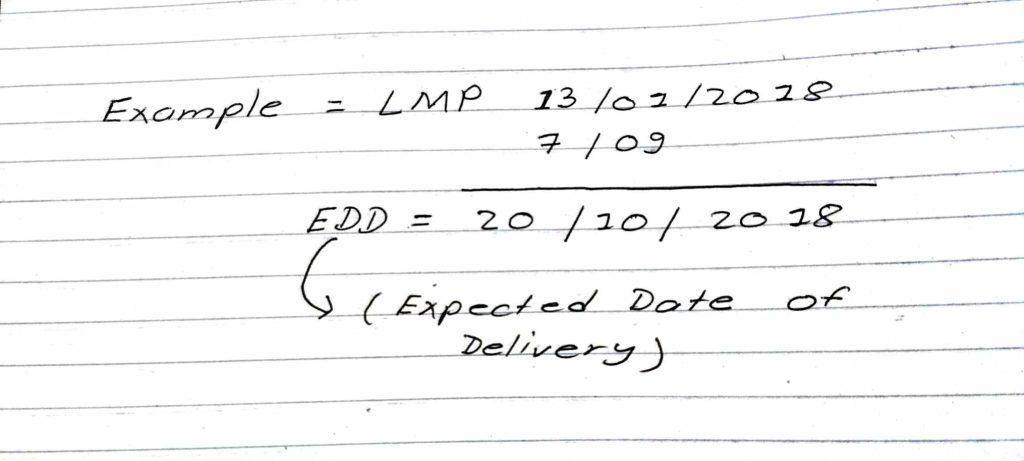 Example = LMP 13/01/2018
7/09
EDD = 20/10/2018
(Expected Date of
Delivery)